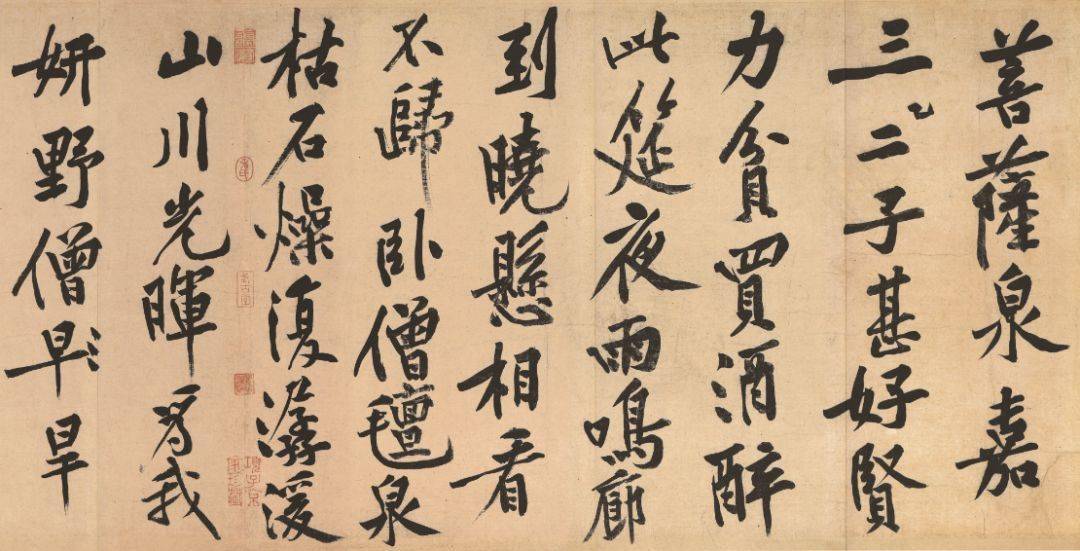 菩薩泉嘉
三二子甚好賢
力貧買酒醉
此筵夜雨鳴廊
到曉懸相看
不歸卧僧氈泉
枯石燥復潺湲
山川光暉為我
妍野僧早旱
項子京家珍藏